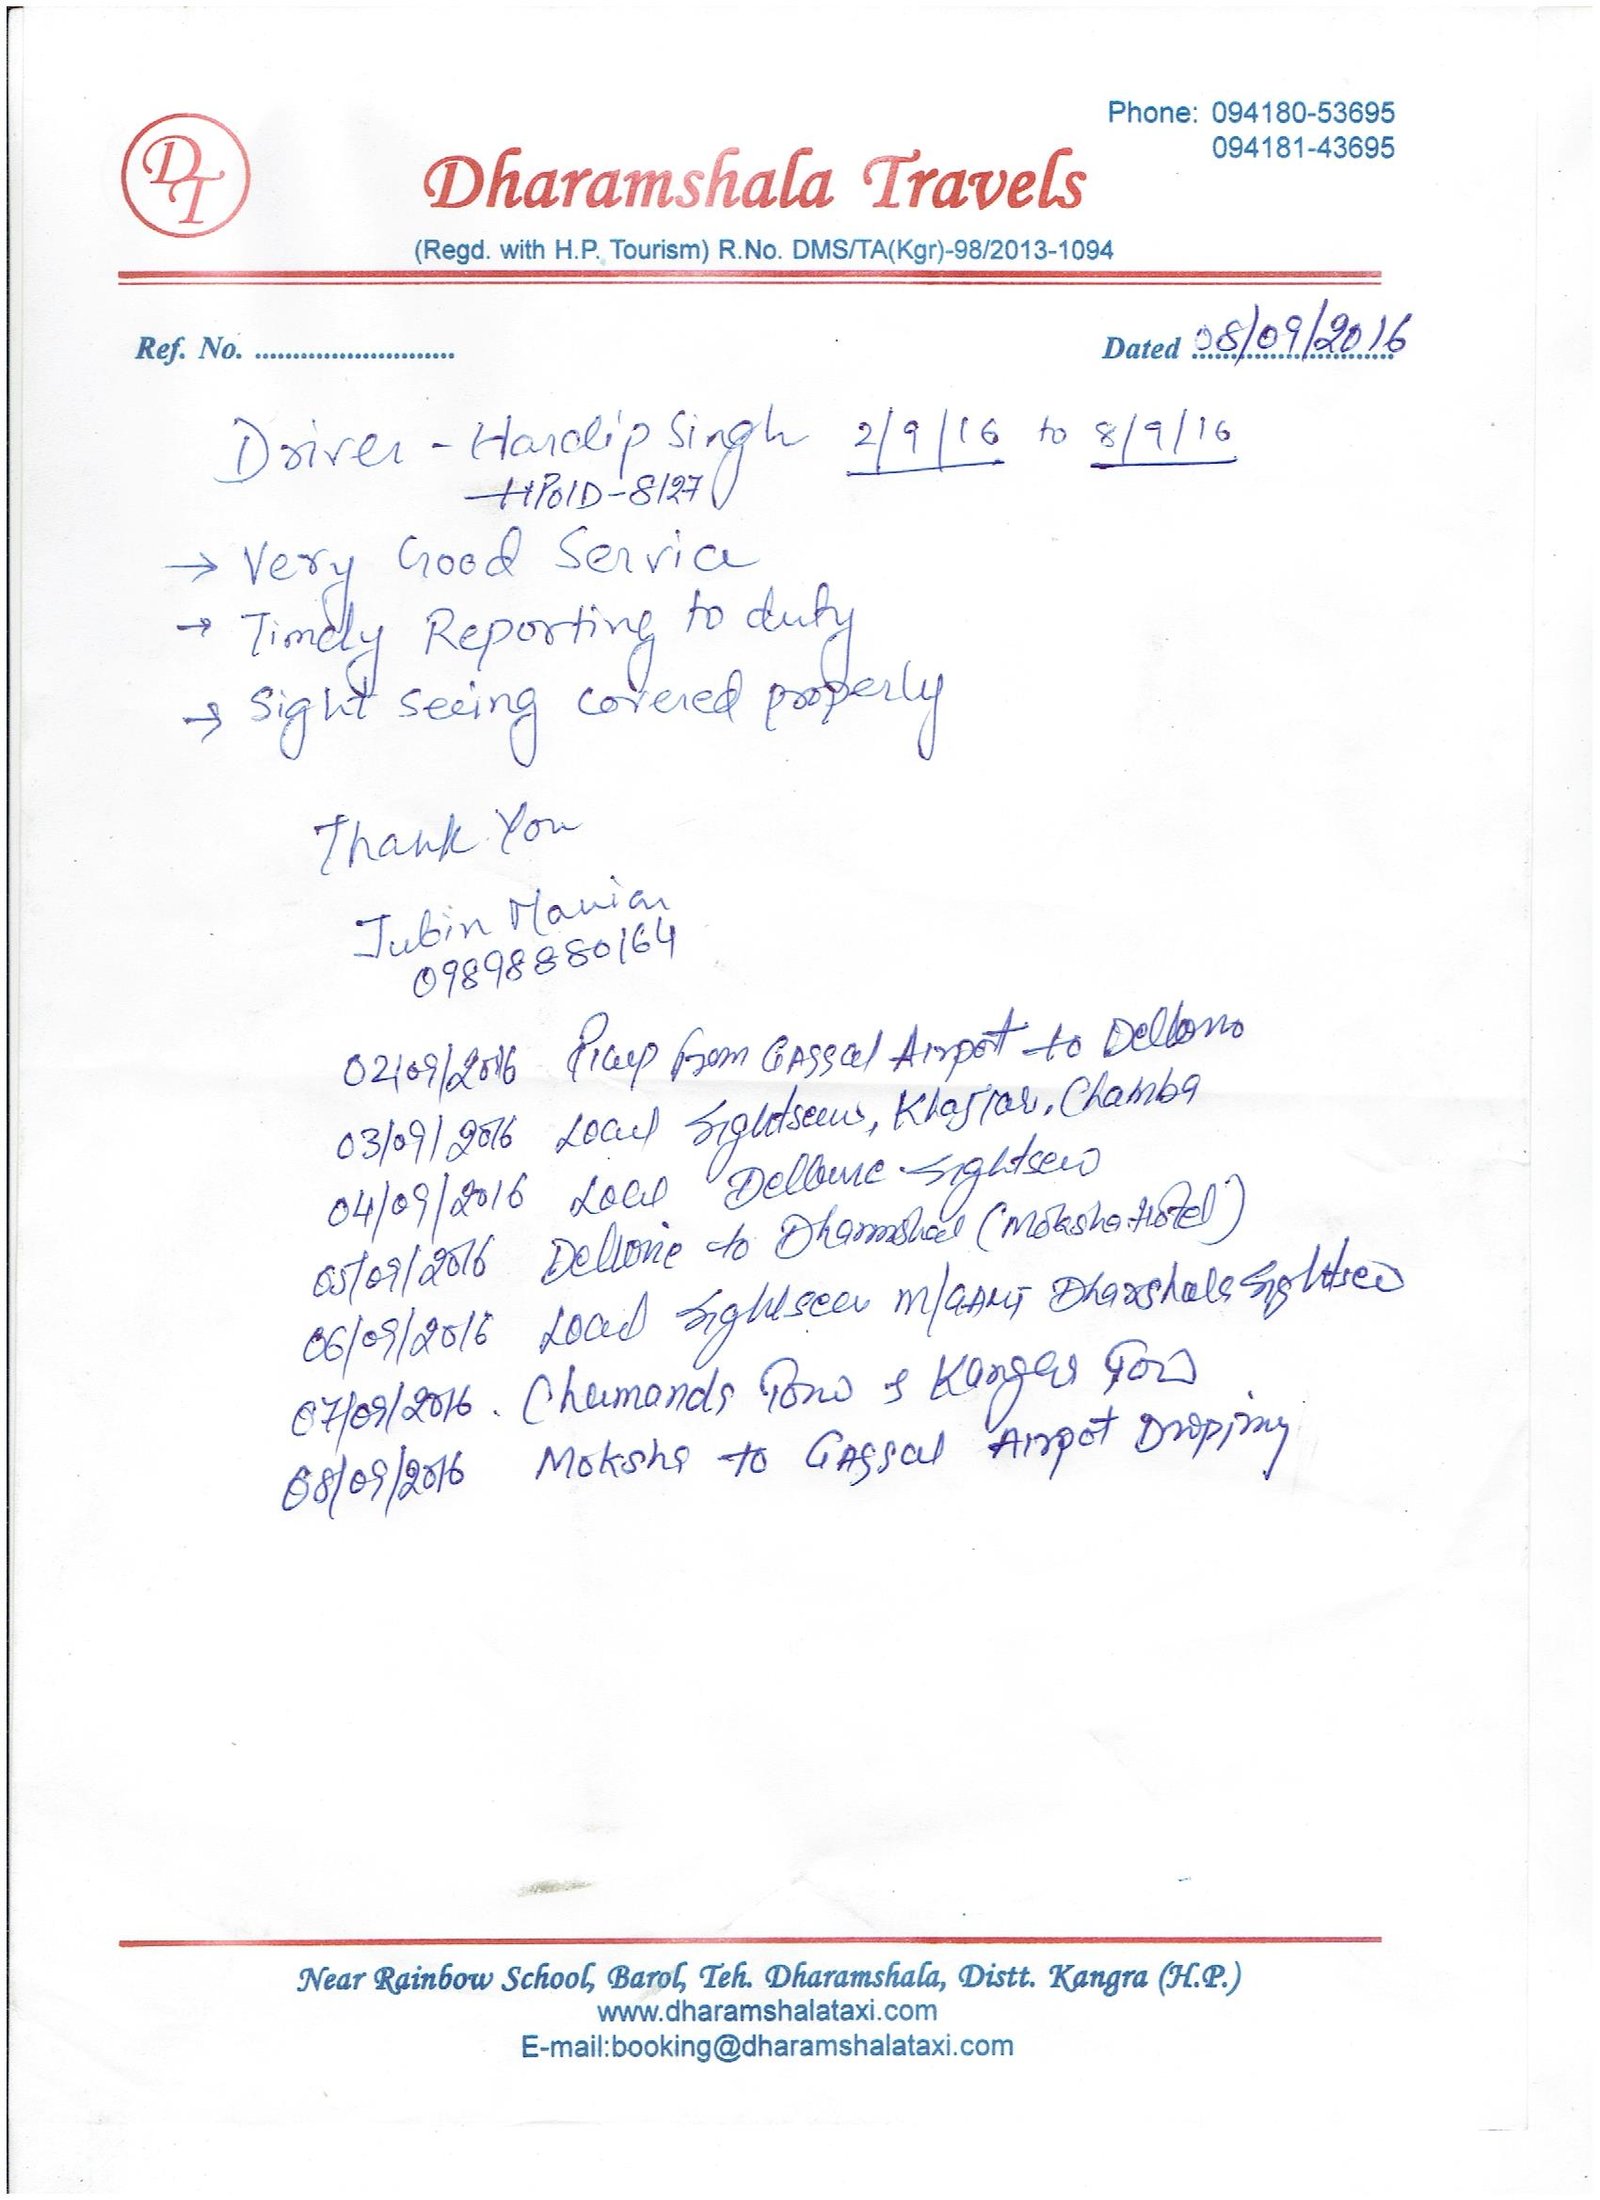 Phone: 094180-53695
094181-43695
DT
Dharamshala Travels
(Regd. with H.P. Tourism) R.No. DMS/TA(Kgr)-98/2013-1094
Ref. No. ........................... Dated 08/09/2016
Driver - Hardip Singh 2/9/16 to 8/9/16
HP01D-8127
→ Very Good Service
→ Timely Reporting to duty
→ Sight Seeing covered properly
Thank You
Jubin
09898880164
02/09/2016 from Gassal Airpot to
03/09/2016 Local Khajiar, Chamba
04/09/2016 Local
05/09/2016 to (Moksha Hotel)
06/09/2016 Local
07/09/2016.
08/09/2016 Moksha to Gassal Airpot
Near Rainbow School, Barol, Teh. Dharamshala, Distt. Kangra (H.P.)
www.dharamshalataxi.com
E-mail:booking@dharamshalataxi.com